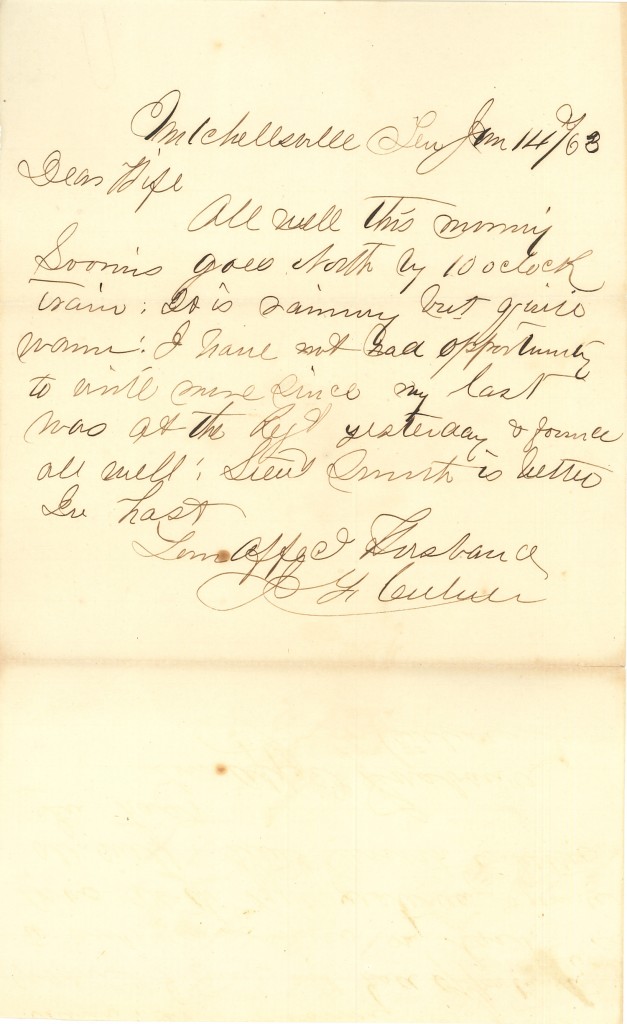 Mitchellsville Ten Jan 14th/63
Dear Wife
All well this morning
goes North by 10 oclock
train. It is raining but quite
warm. I have not had opportunity
to write more since my last
was at the Regt yesterday & found
all well. Lieut Smith is better
In hast
Your Affect Husband